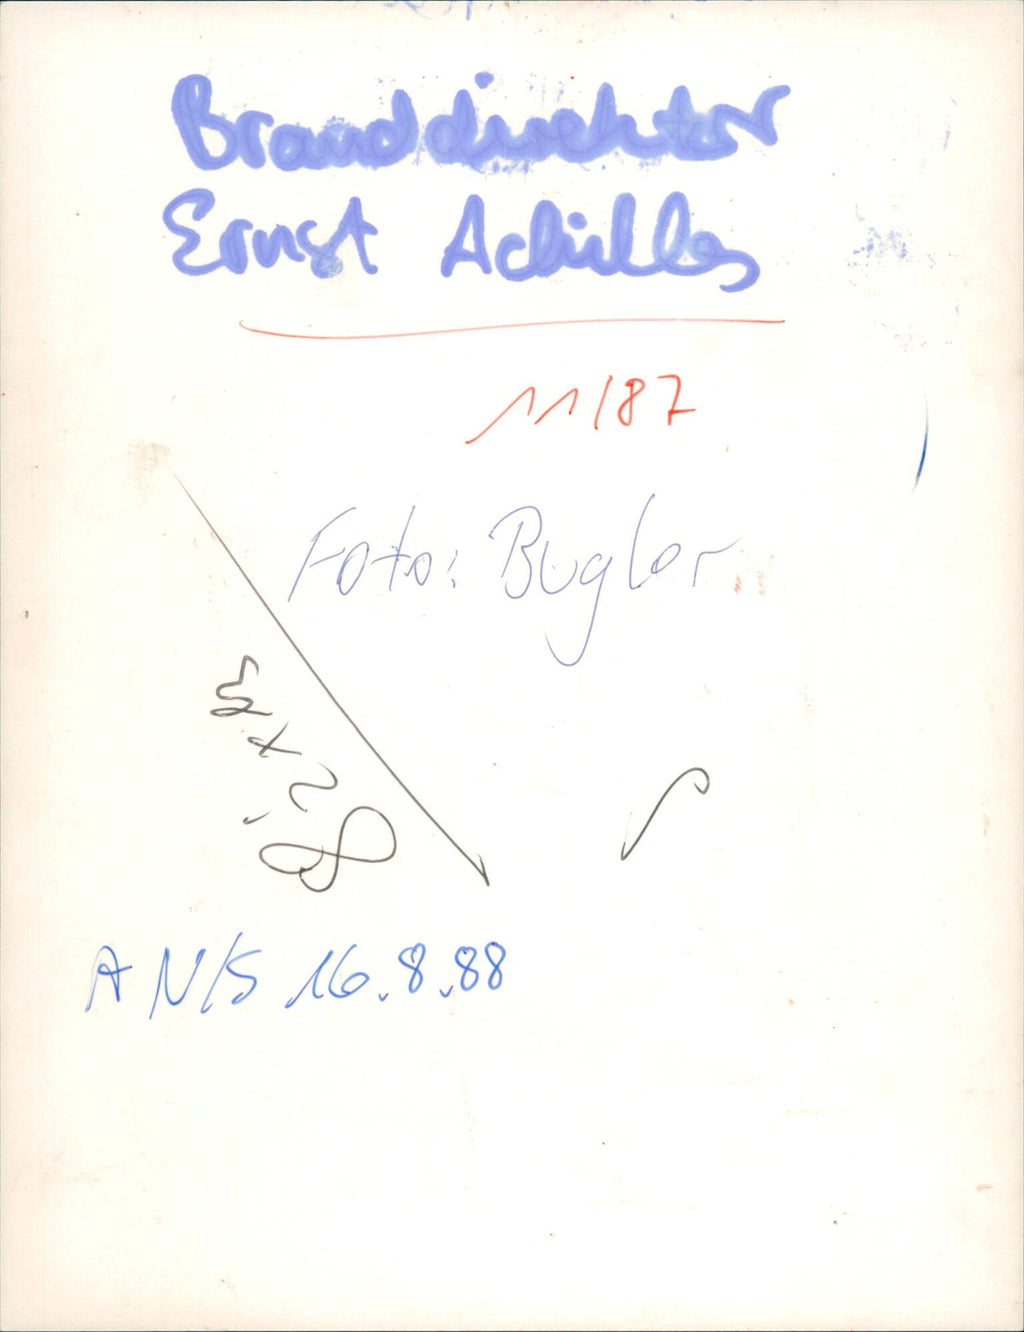 Branddirektor
Ernst Achilles
11/87
Foto: Bugler
8,2 x
A N/S 16.8.88